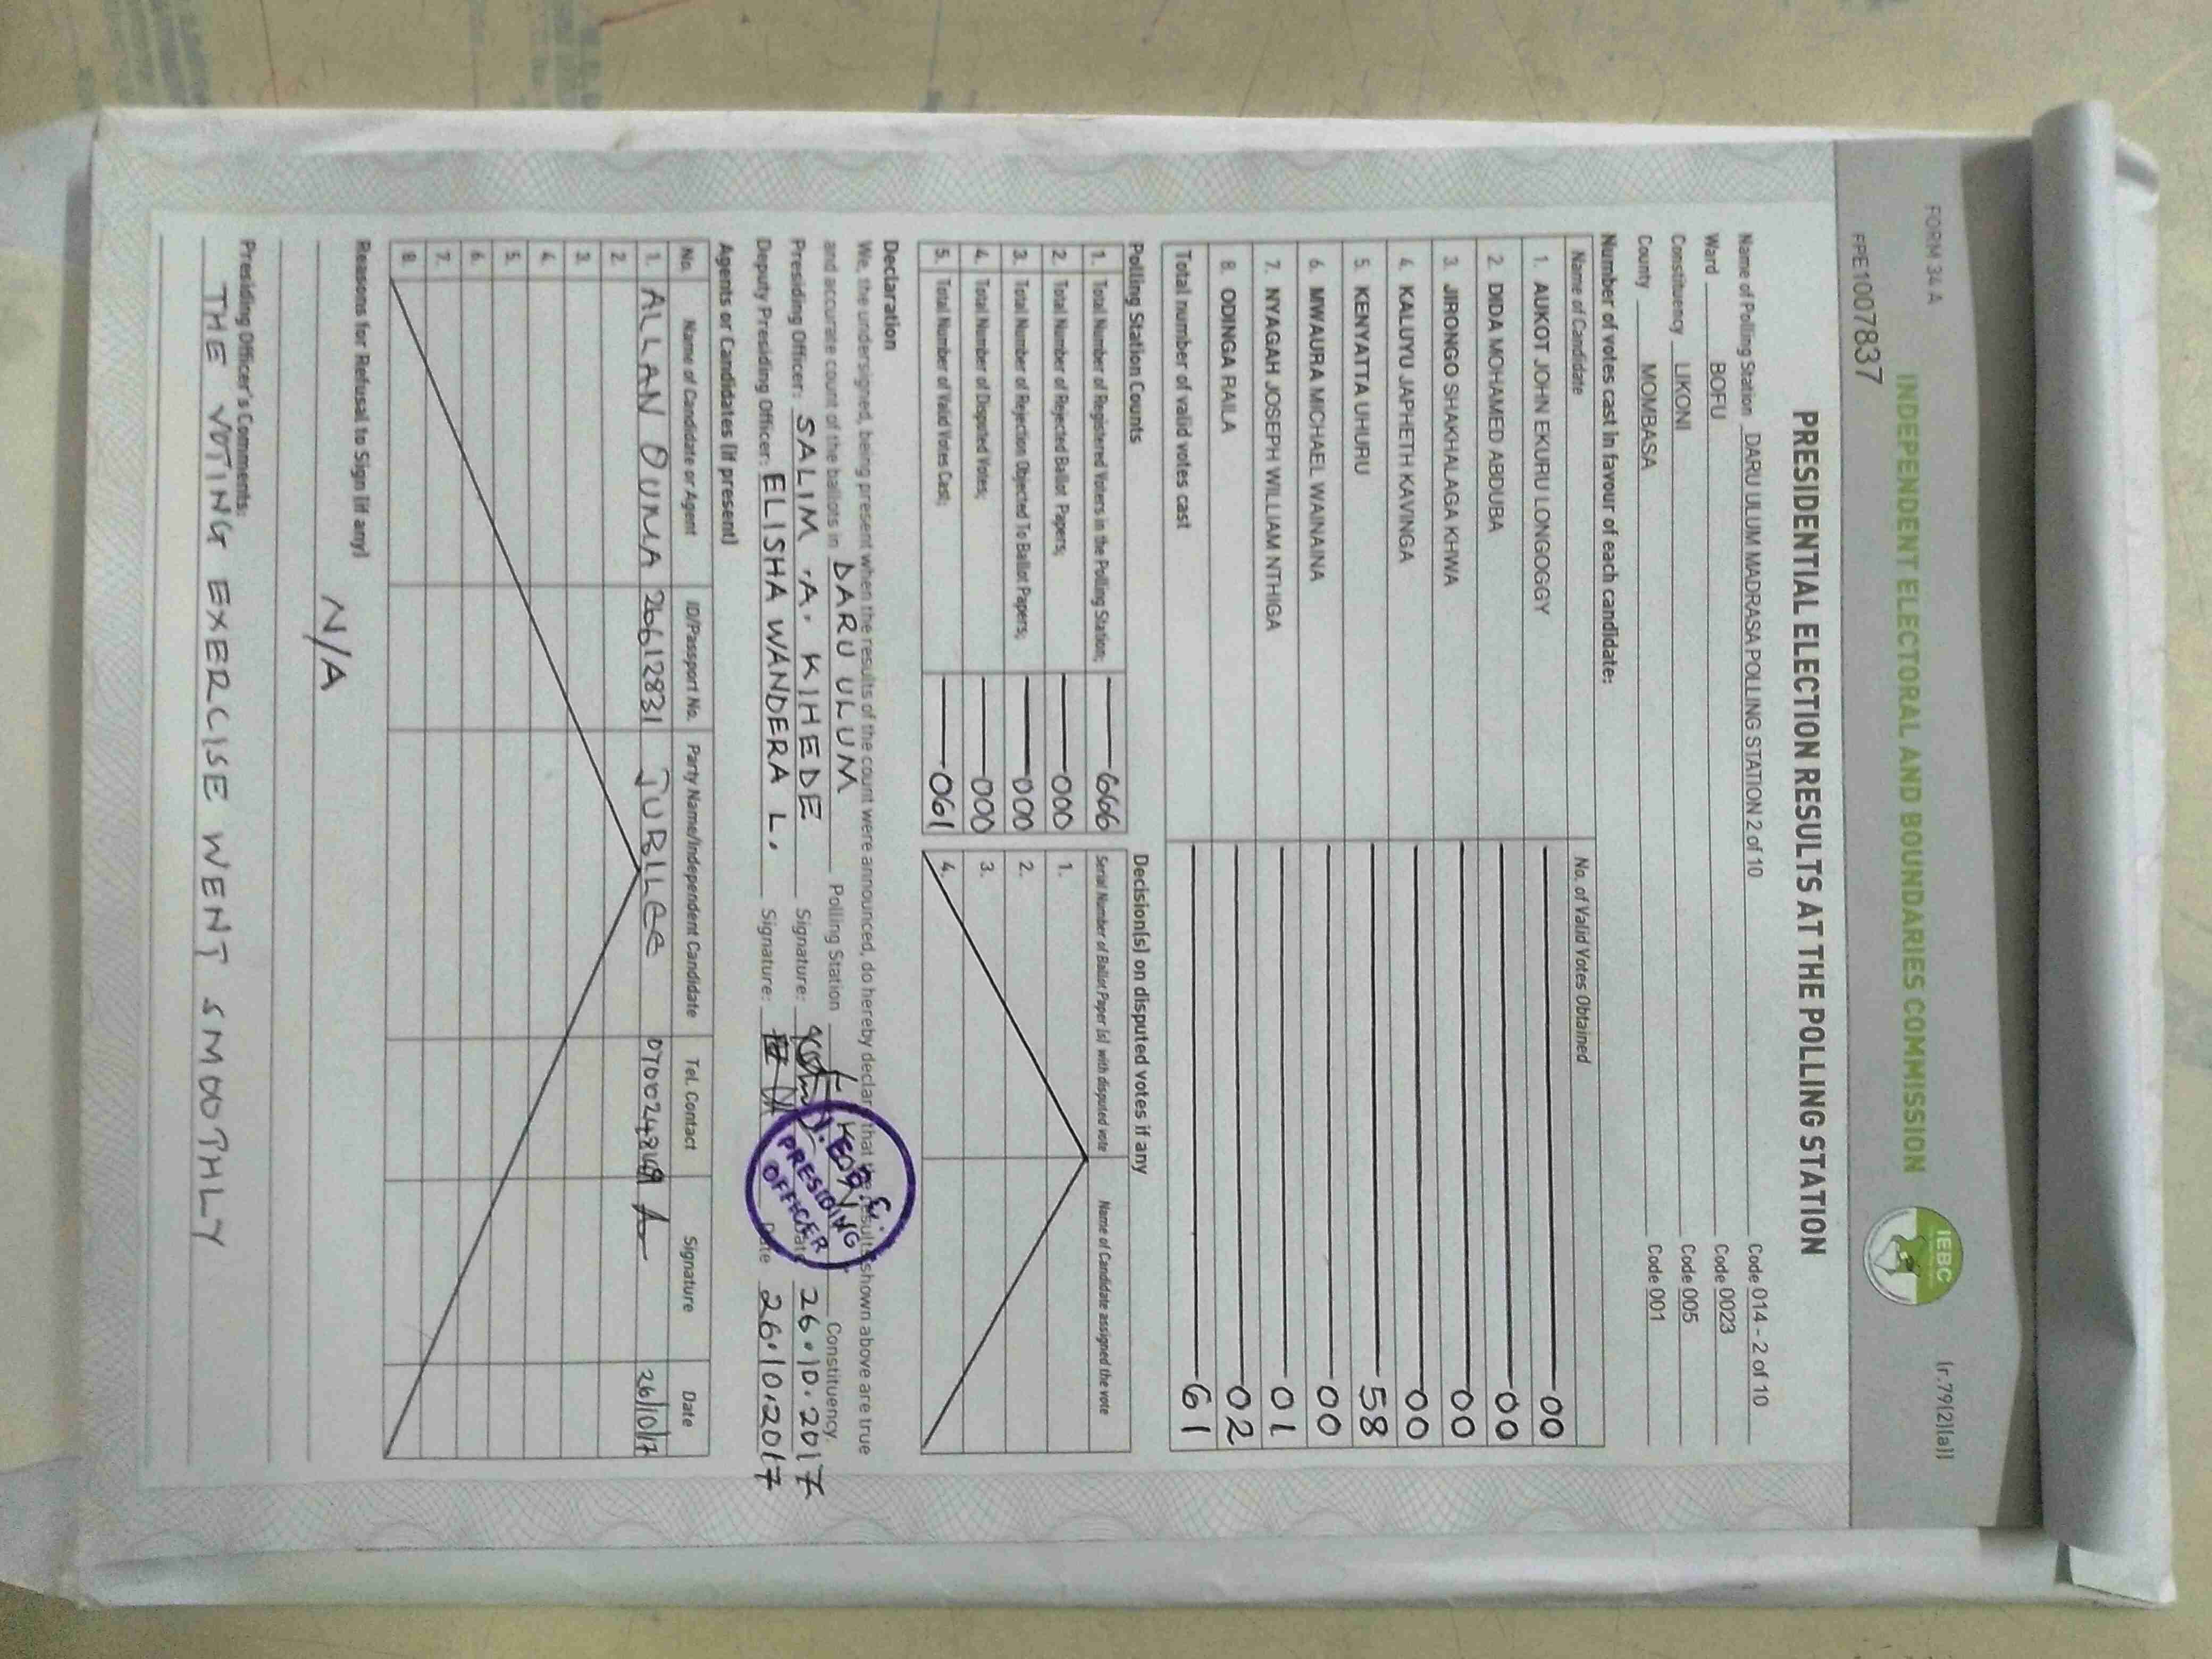 FORM 34 A
(r.79(2)(a))
INDEPENDENT ELECTORAL AND BOUNDARIES COMMISSION
IEBC
PPE1007837
PRESIDENTIAL ELECTION RESULTS AT THE POLLING STATION
Name of Polling Station DARU ULUM MADRASA POLLING STATION 2 of 10 Code 014 - 2 of 10
Ward BOFU Code 0023
Constituency LIKONI Code 005
County MOMBASA Code 001
Number of votes cast in favour of each candidate:
Name of Candidate No. of Valid Votes Obtained
1. AUKOT JOHN EKURU LONGOGGY 00
2. DIDA MOHAMED ABDUBA 00
3. JIRONGO SHAKHALAGA KHWA 00
4. KALUYU JAPHETH KAVINGA 00
5. KENYATTA UHURU 58
6. MWAURA MICHAEL WAINAINA 00
7. NYAGAH JOSEPH WILLIAM NTHIGA 01
8. ODINGA RAILA 02
Total number of valid votes cast 61
Polling Station Counts
1. Total Number of Registered Voters in the Polling Station; 666
2. Total Number of Rejected Ballot Papers; 000
3. Total Number of Rejection Objected To Ballot Papers; 000
4. Total Number of Disputed Votes; 000
5. Total Number of Valid Votes Cast; 061
Decision(s) on disputed votes if any
Serial Number of Ballot Paper (s) with disputed vote Name of Candidate assigned the vote
1.
2.
3.
4.
Declaration
We, the undersigned, being present when the results of the count were announced, do hereby declare that the results shown above are true
and accurate count of the ballots in DARU ULUM Polling Station Constituency.
Presiding Officer: SALIM .A. KIHEDE Signature: Date 26.10.2017
Deputy Presiding Officer: ELISHA WANDERA L. Signature: Date 26.10.2017
PRESIDING
OFFICER
Agents or Candidates (if present)
No. Name of Candidate or Agent ID/Passport No. Party Name/Independent Candidate Tel. Contact Signature Date
1. ALLAN OUMA 26612831 JUBILEE 26/10/17
2.
3.
4.
5.
6.
7.
8.
Reasons for Refusal to Sign (if any)
N/A
Presiding Officer's Comments:
THE VOTING EXERCISE WENT SMOOTHLY